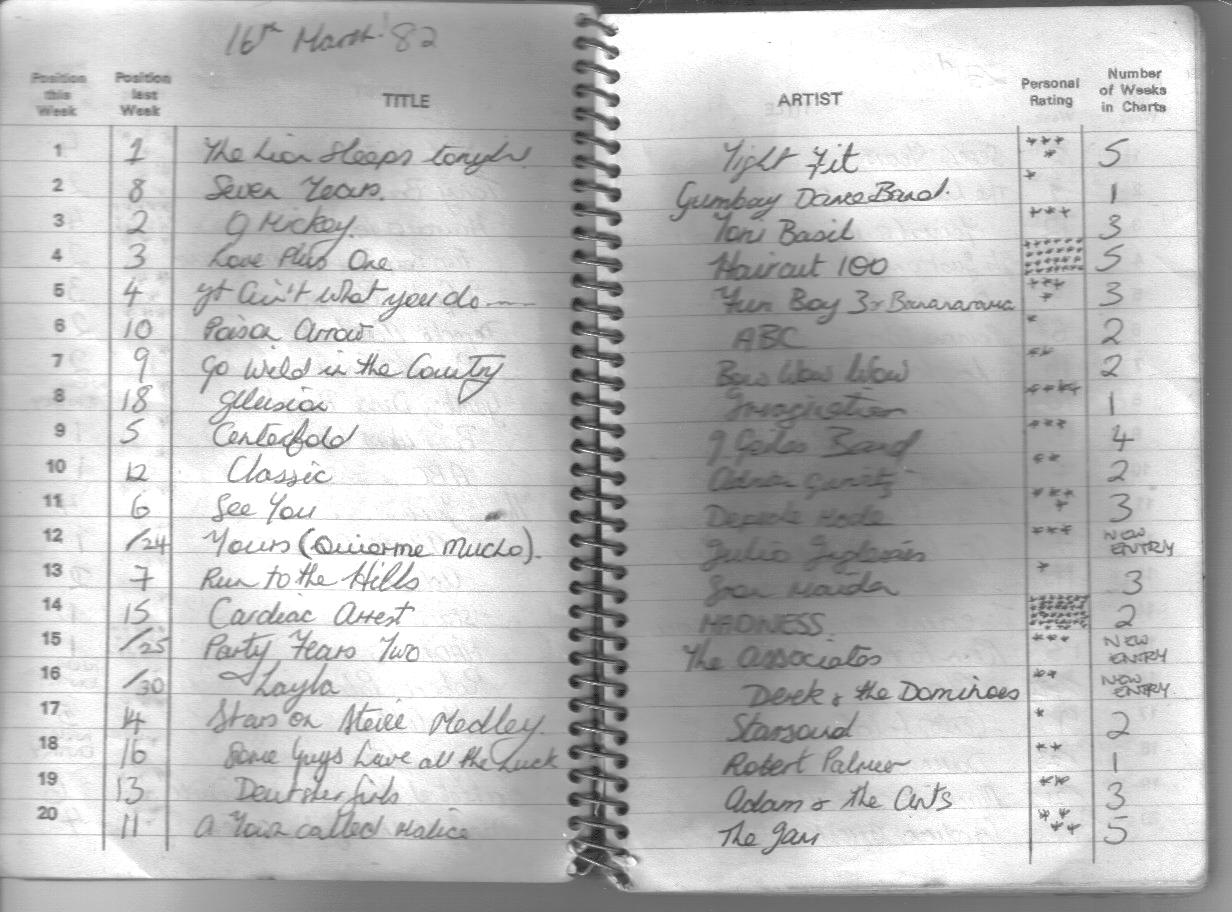 16th March '82
Position this Week Position last Week TITLE ARTIST Personal Rating Number of Weeks in Charts
1 1 The Lion Sleeps tonight Tight Fit **** 5
2 8 Seven Tears. Goombay Dance Band. * 1
3 2 O Mickey. Toni Basil *** 3
4 3 Love Plus One Haircut 100 5
5 4 It Ain't What you do ---- Fun Boy 3 & Bananarama **** 3
6 10 Poison Arrow ABC * 2
7 9 Go Wild in the Country Bow Wow Wow ** 2
8 18 Illusion Imagination **** 1
9 5 Centerfold J Geiles Band *** 4
10 12 Classic Adrian Gurvitz ** 2
11 6 See You Depeche Mode **** 3
12 /24 Yours (Quiorme Mucho). Julio Iglesias *** NEW ENTRY
13 7 Run to the Hills Iron Maiden * 3
14 15 Cardiac Arrest MADNESS. 2
15 /25 Party Fears Two The Associates *** NEW ENTRY
16 /30 Layla Derek & the Dominoes ** NEW ENTRY
17 14 Stars on Steiie Medley. Starsound * 2
18 16 Some Guys have all the Luck Robert Palmer ** 1
19 13 Deutsher Girls Adam & the Ants *** 3
20 11 A Town called Malice The Jam **** 5